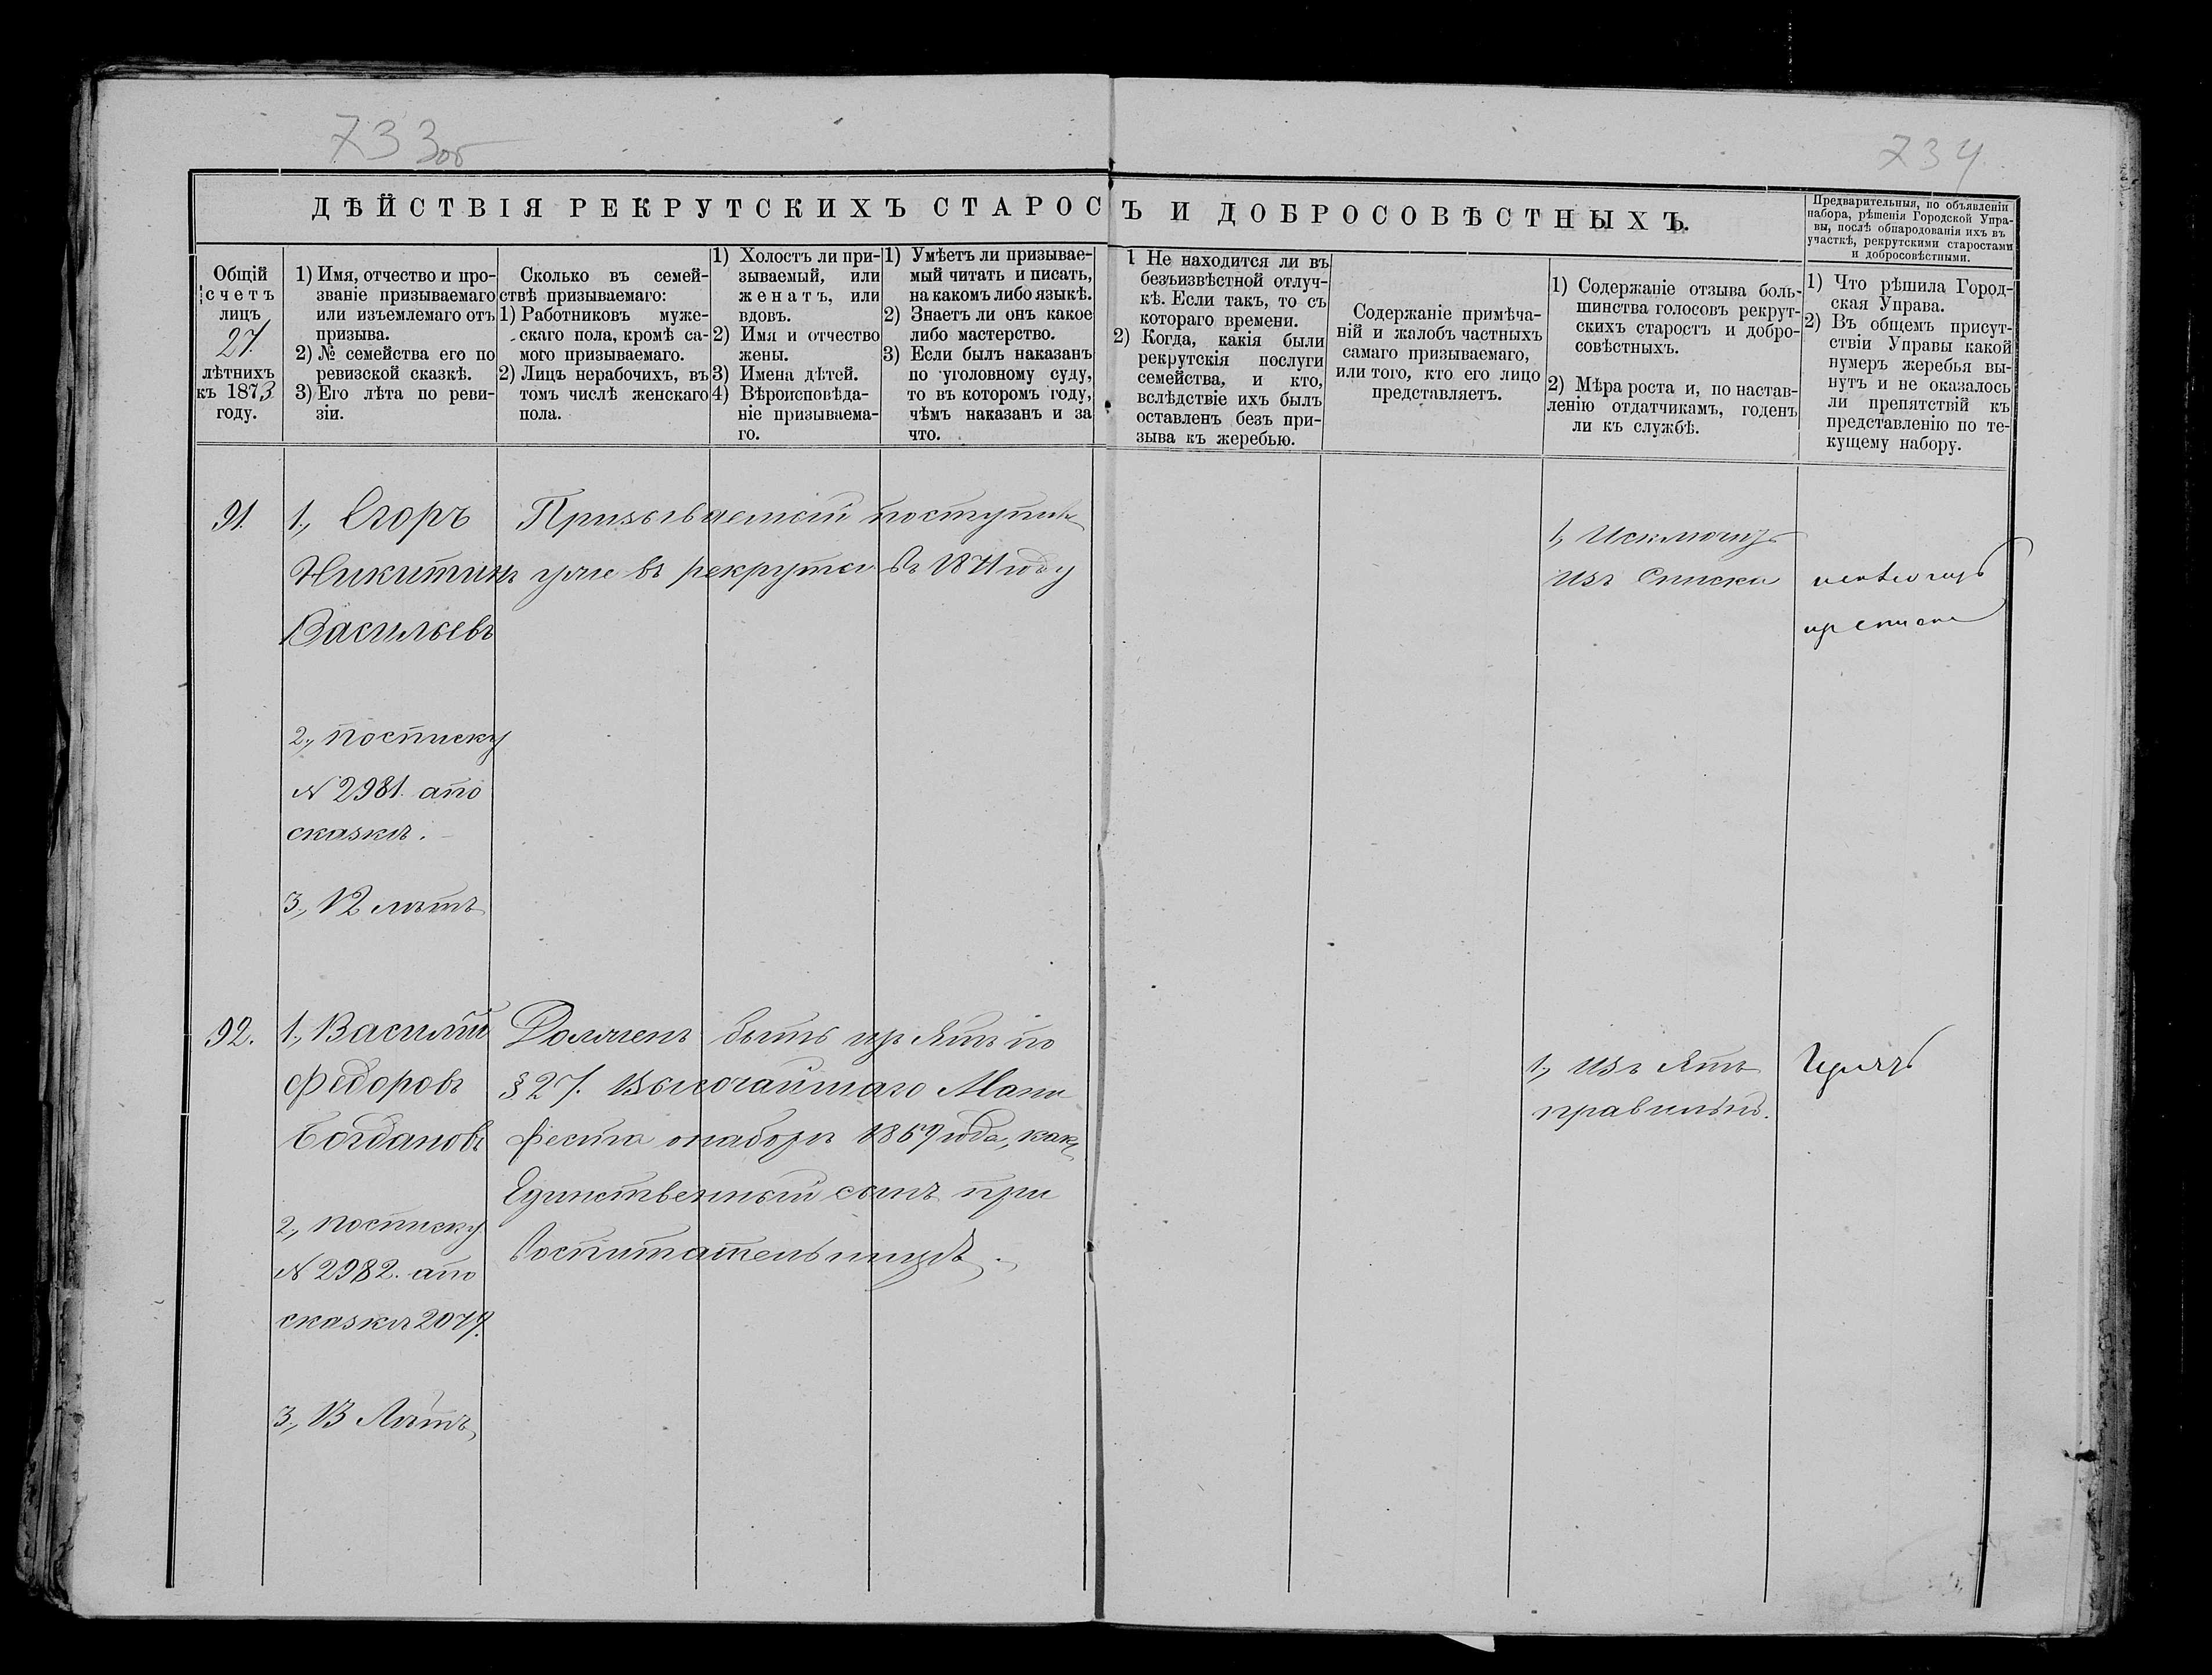 733об
734
ДѢЙСТВІЯ РЕКРУТСКИХЪ СТАРОСТЪ И ДОБРОСОВѢСТНЫХЪ.
Предварительныя, по объявленіи
набора, рѣшенія Городской Упра-
вы, послѣ обнародованія ихъ въ
участкѣ, рекрутскими старостами
и добросовѣстными.
Общій
счетъ
лицъ
27.
лѣтнихъ
къ 1873
году.
1) Имя, отчество и про-
званіе призываемаго
или изъемлемаго отъ
призыва.
2) № семейства его по
ревизской сказкѣ.
3) Его лѣта по реви-
зіи.
Сколько въ семей-
ствѣ призываемаго:
1) Работниковъ муже-
скаго пола, кромѣ са-
мого призываемаго.
2) Лицъ нерабочихъ, въ
томъ числѣ женскаго
пола.
1) Холостъ ли при-
зываемый, или
женатъ, или
вдовъ.
2) Имя и отчество
жены.
3) Имена дѣтей.
4) Вѣроисповѣда-
ніе призываема-
го.
1) Умѣетъ ли призывае-
мый читать и писать,
на какомъ либо языкѣ.
2) Знаетъ ли онъ какое
либо мастерство.
3) Если былъ наказанъ
по уголовному суду,
то въ которомъ году,
чѣмъ наказанъ и за
что.
1 Не находится ли въ
безъизвѣстной отлуч-
кѣ. Если такъ, то съ
котораго времени.
2) Когда, какія были
рекрутскія послуги
семейства, и кто,
вслѣдствіе ихъ былъ
оставленъ безъ при-
зыва къ жеребью.
Содержаніе примѣча-
ній и жалобъ частныхъ
самаго призываемаго,
или того, кто его лицо
представляетъ.
1) Содержаніе отзыва боль-
шинства голосовъ рекрут-
скихъ старостъ и добро-
совѣстныхъ.
2) Мѣра роста и, по настав-
ленію отдатчикамъ, годенъ
ли къ службѣ.
1) Что рѣшила Город-
ская Управа.
2) Въ общемъ присут-
ствіи Управы какой
нумеръ жеребья вы-
нутъ и не оказалось
ли препятствій къ
представленію по те-
кущему набору.
91.
1., Егоръ
Никитинъ
Васильевъ
2., по списку
N 2981. а по
сказкѣ.
3., 12 лѣтъ
Призываемый поступилъ
уже въ рекруты въ 1871 году
1., Исключить
изъ Списка
исключить
изъ списка
92.
1., Василій
Федоровъ
Богдановъ
2., по списку
N 2982. а по
сказкѣ 2079.
3., 13 Лѣтъ
Долженъ быть изъятъ по
§ 27. Высочайшаго Мани
феста о наборѣ 1869 года, какъ
Единственный сынъ при
Воспитательницѣ.
1., Изъятъ
правильно.
Изъятъ